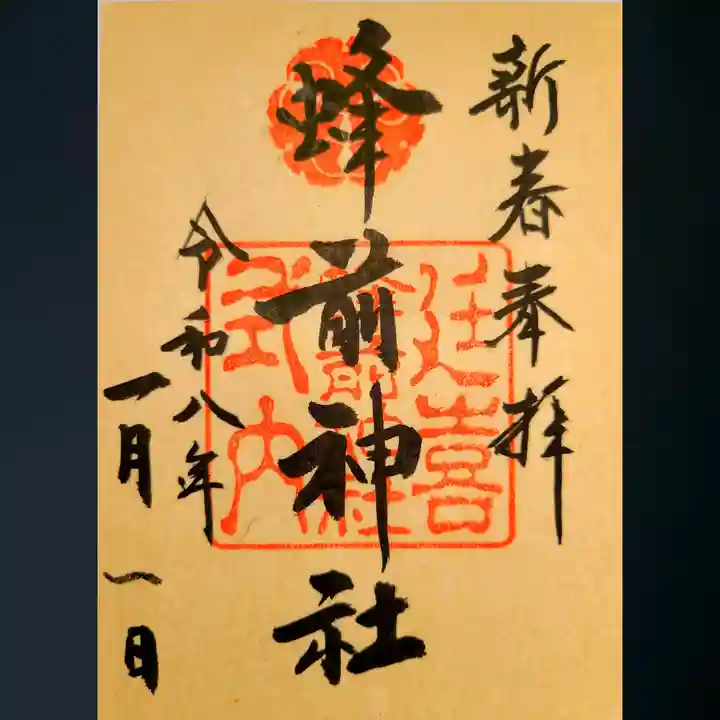 新春奉拝
蜂前神社
延喜
式内
令和八年
一月一日